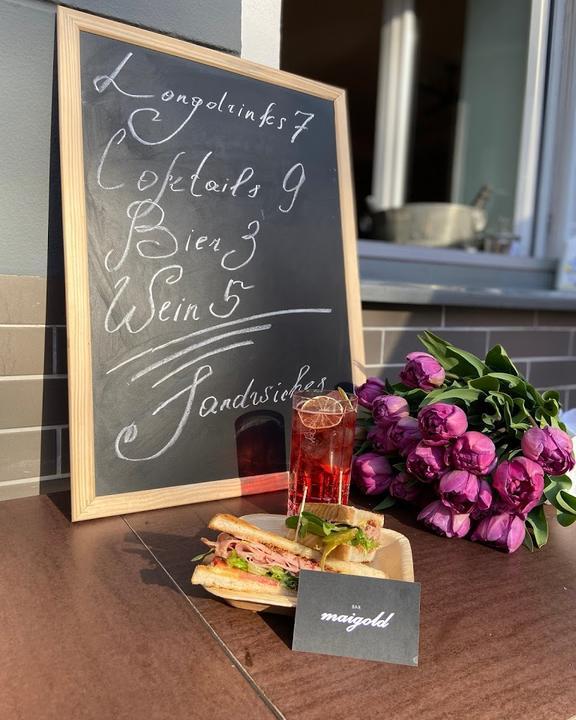 Longdrinks 7
Coktails 9
Bier 3
Wein 5
Sandwiches
BAR
maigold